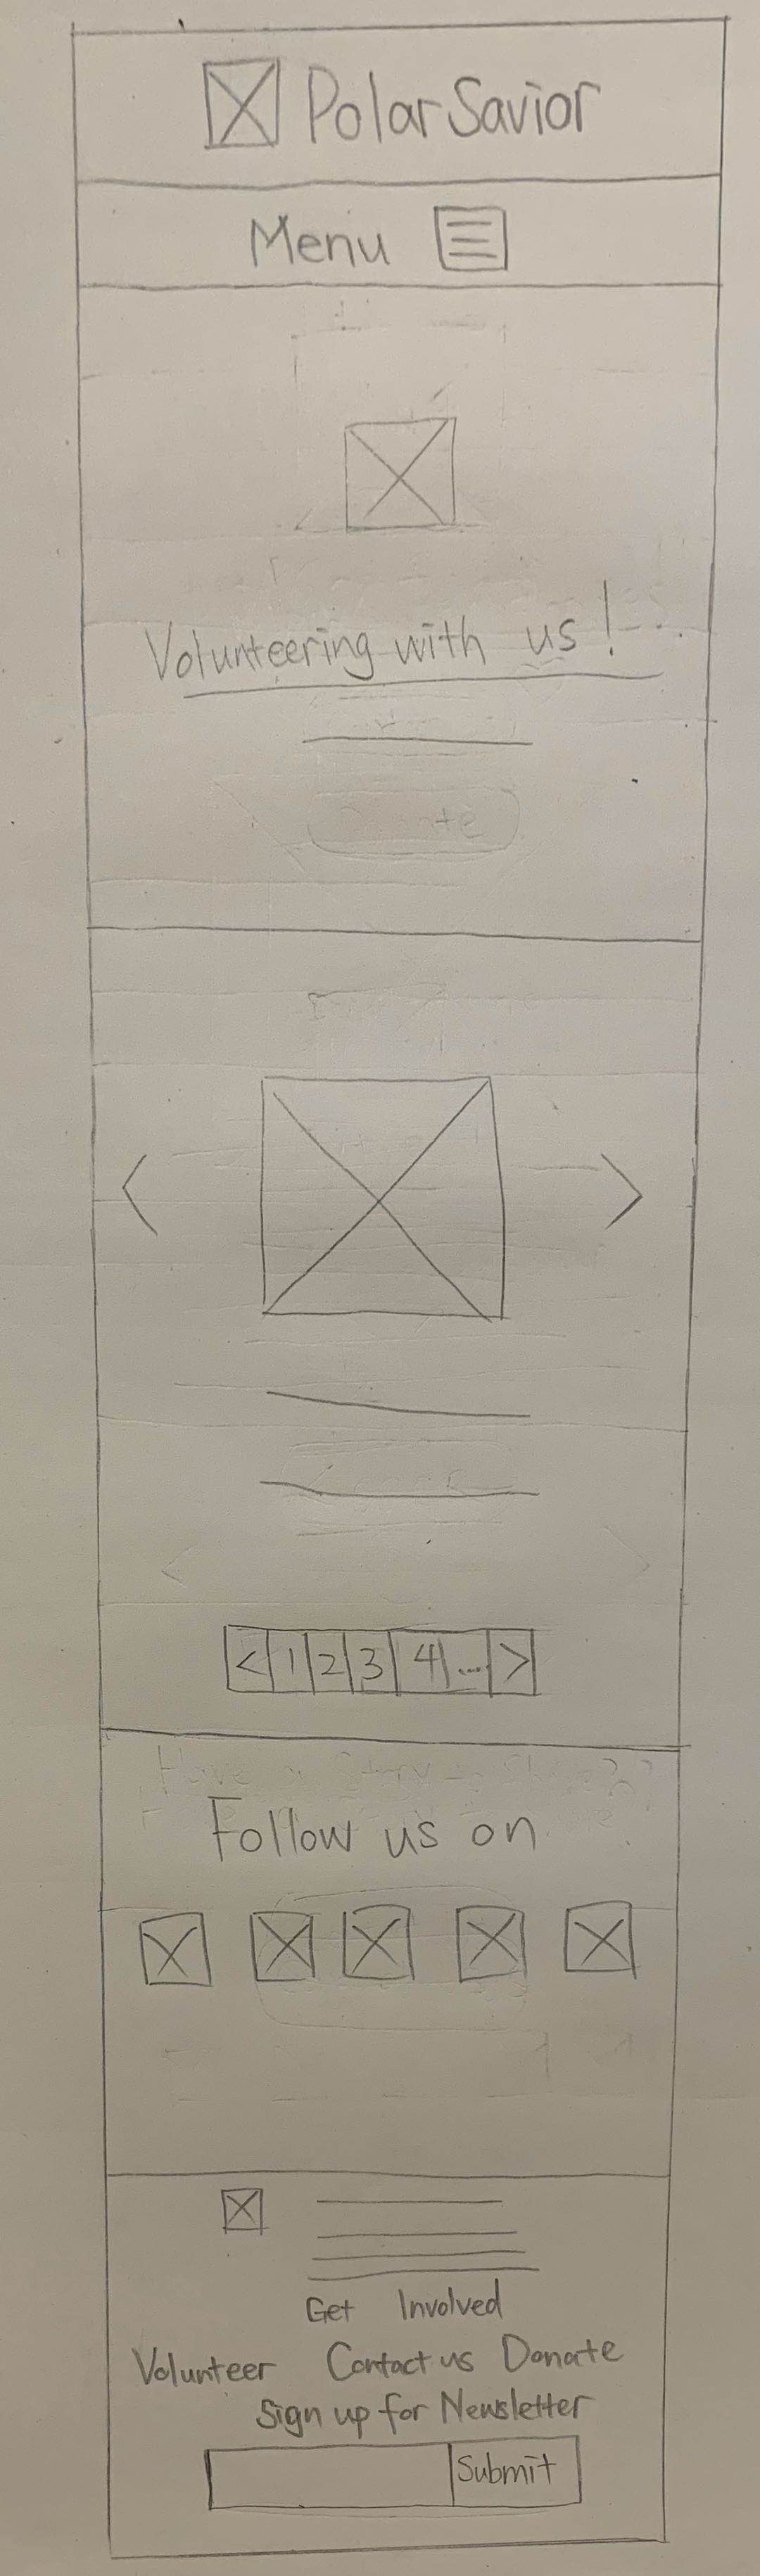 Polar Savior
Menu
Volunteering with us!
< 1 2 3 4 ... >
Follow us on
Get Involved
Volunteer Contact us Donate
Sign up for Newsletter
Submit